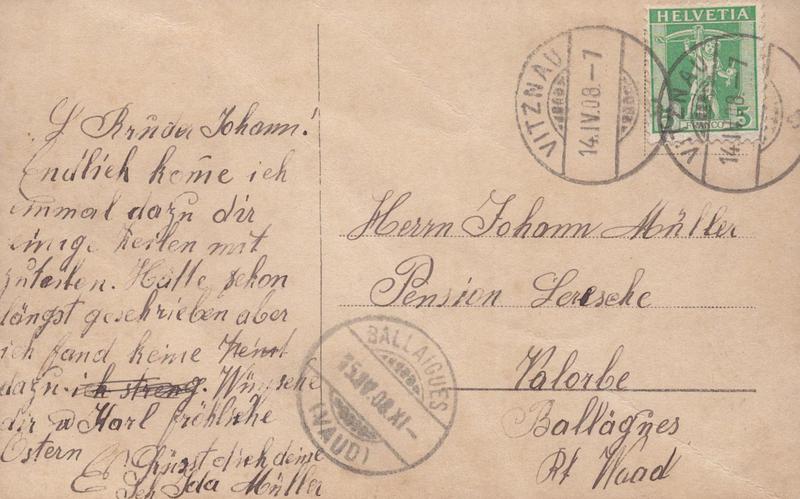 L Bruder Johann!
Endlich kome ich
einmal dazu dir
einige Zeilen mit
zuteilen. Hätte schon
längst geschrieben aber
ich fand keine
dazu ich streng. Wünsche
dir u Karl fröhliche
Ostern
Es Grüsst dich deine
Ida Müller
HELVETIA
FRANCO
5
VITZNAU
14.IV.08.–7
VITZNAU
14.IV.08.–7
Herrn Johann Müller
Pension Leresche
Valorbe
Ballägnes
Kt Waad
BALLAIGUES
15.IV.08.XI–
(VAUD)